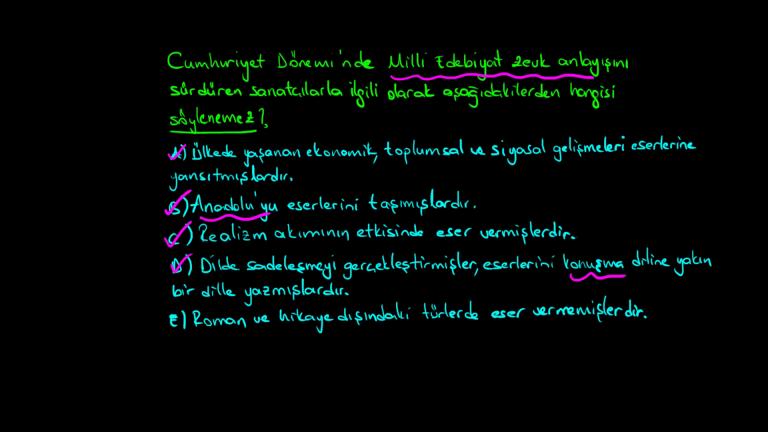 Cumhuriyet Dönemi'nde Milli Edebiyat zevk anlayışını
sürdüren sanatçılarla ilgili olarak aşağıdakilerden hangisi
söylenemez?
A) Ülkede yaşanan ekonomik, toplumsal ve siyasal gelişmeleri eserlerine
yansıtmışlardır.
B) Anadolu'yu eserlerini taşımışlardır.
C) Realizm akımının etkisinde eser vermişlerdir.
D) Dilde sadeleşmeyi gerçekleştirmişler, eserlerini konuşma diline yakın
bir dille yazmışlardır.
E) Roman ve hikaye dışındaki türlerde eser vermemişlerdir.